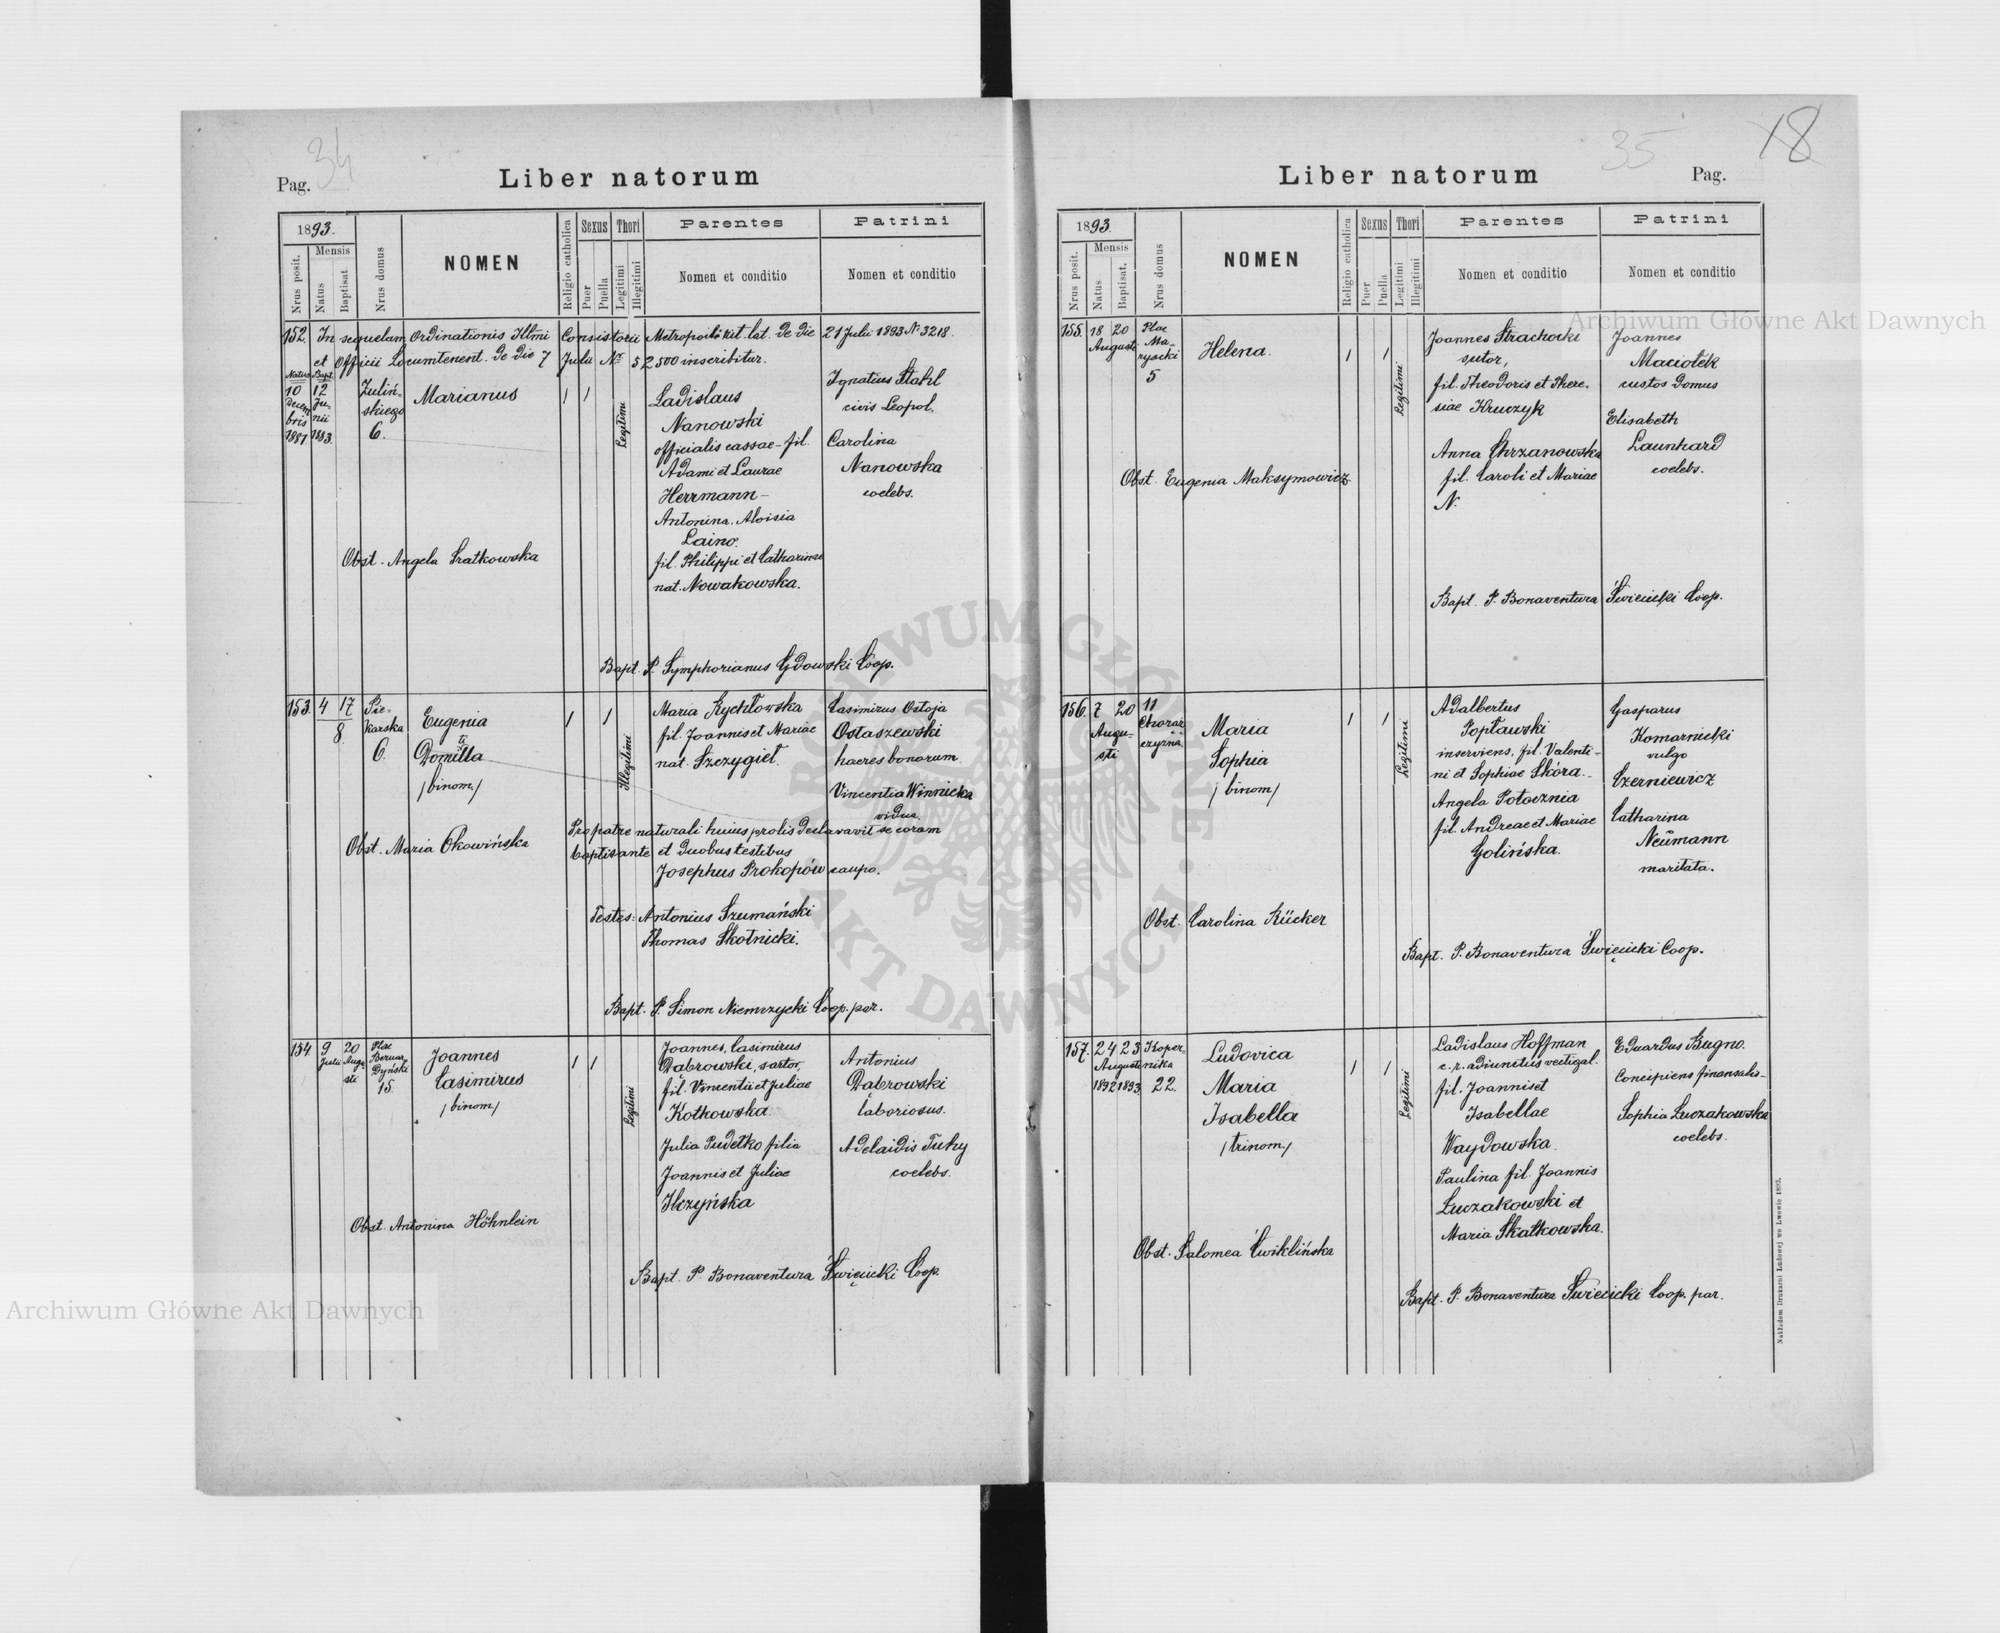 34
Pag.
Liber natorum
1893.
Mensis
Nrus posit.
Natus
Baptisat.
Nrus domus
NOMEN
Religio catholica
Sexus
Puer
Puella
Thori
Legitimi
Illegitimi
Parentes
Nomen et conditio
Patrini
Nomen et conditio
152. In sequelam Ordinationis Illmi Consistorii Metropolit rit. lat. de die 21 Julii 1893 Nr 3218.
et Officii Locumtenent. de die 7 Julii Nr. 52500 inscribitur.
Natus Bapt.
10 decembris 1887
12 Junii 1883.
Zulińskiego
6.
Marianus
1 1
Legitimi
Ladislaus
Nanowski
officialis cassae - fil.
Adami et Laurae
Herrmann -
Antonina, Aloisia
Laino.
fil. Philippi et Catharinae
nat. Nowakowska.
Ignatius Stahl
civis Leopol.
Carolina
Nanowska
coelebs.
Obst. Angela Sratkowska
Bapt. P. Symphorianus Gdowski Coop.
153. 4 17
8
Piekarska
6.
Eugenia
Domitilla
/binom/
1 1
Illegitimi
Maria Rychłowska
fil. Joannis et Mariae
nat. Szczygieł.
Casimirus Ostoja
Ostaszewski
haeres bonorum.
Vincentia Winnicka
vidua.
Obst. Maria Okowińska
Pro patre naturali huius prolis declaravit se coram
baptisante et duobus testibus
Josephus Prokopów caupo.
Testes: Antonius Szumański
Thomas Skotnicki.
Bapt. P. Simon Niemczycki Coop. par.
154 9 Julii
20 Augusti
Plac
Bernardyński
15.
Joannes
Casimirus
/binom/
1 1
Legitimi
Joannes, Casimirus
Dąbrowski, sartor,
fil. Vincentii et Juliae
Kotkowska.
Julia Pudełko filia
Joannis et Juliae
Ilczyńska
Antonius
Dąbrowski
laboriosus.
Adelaidis Tuhy
coelebs.
Obst. Antonina Höhnlein
Bapt. P. Bonaventura Święcicki Coop.
35
18
Liber natorum
Pag.
1893.
Mensis
Nrus posit.
Natus
Baptisat.
Nrus domus
NOMEN
Religio catholica
Sexus
Puer
Puella
Thori
Legitimi
Illegitimi
Parentes
Nomen et conditio
Patrini
Nomen et conditio
155. 18 20
Augusti
Plac
Maryacki
5
Helena.
1 1
Legitimi
Joannes Strachocki
sutor,
fil. Theodoris et Theresiae Kruczyk
Anna Chrzanowska
fil. Caroli et Mariae
N.
Joannes
Maciołek
custos domus
Elisabeth
Launhard
coelebs.
Obst. Eugenia Maksymowicz
Bapt. P. Bonaventura Święcicki Coop.
156. 7 20
Augusti
11
Chorążczyzna.
Maria
Sophia
/binom/
1 1
Legitimi
Adalbertus
Popławski
inserviens, fil. Valentini et Sophiae Skóra. -
Angela Potocznia
fil. Andreae et Mariae
Golińska.
Gasparus
Komarnicki
vulgo
Czerniewicz
Catharina
Neümann
maritata.
Obst. Carolina Rücker
Bapt. P. Bonaventura Święcicki Coop.
157. 24 23
Augusti
1892 1893.
Kopernika
22.
Ludovica
Maria
Isabella
/trinom/
1 1
Legitimi
Ladislaus Hoffman
c. r. adiunctus vectigal.
fil. Joannis et
Isabellae
Waydowska.
Paulina fil. Joannis
Łuczakowski et
Maria Skałkowska.
Eduardus Bugno.
Concipiens finansalis -
Sophia Łuczakowska
coelebs.
Obst. Salomea Ćwiklińska
Bapt. P. Bonaventura Święcicki Coop. par.
Nakładem Drukarni Ludowej we Lwowie 1893.
Archiwum Główne Akt Dawnych
Archiwum Główne Akt Dawnych
ARCHIWUM GŁÓWNE AKT DAWNYCH